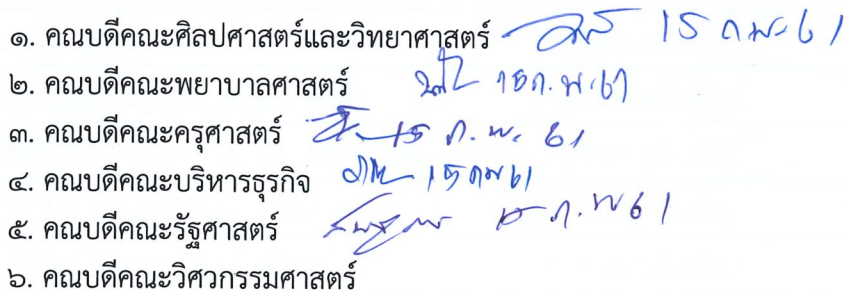 ๑. คณบดีคณะศิลปศาสตร์และวิทยาศาสตร์ 15 ก.พ. 61
๒. คณบดีคณะพยาบาลศาสตร์ 15 ก.พ. 61
๓. คณบดีคณะครุศาสตร์ 15 ก.พ. 61
๔. คณบดีคณะบริหารธุรกิจ 15 กพ 61
๕. คณบดีคณะรัฐศาสตร์ ก.พ 61
๖. คณบดีคณะวิศวกรรมศาสตร์